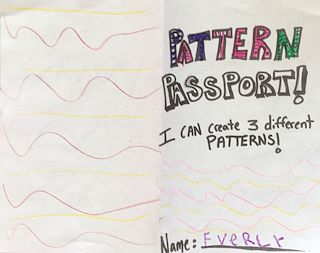 PATTERN
PASSPORT!
I CAN create 3 different
PATTERNS!
Name: EVERLY